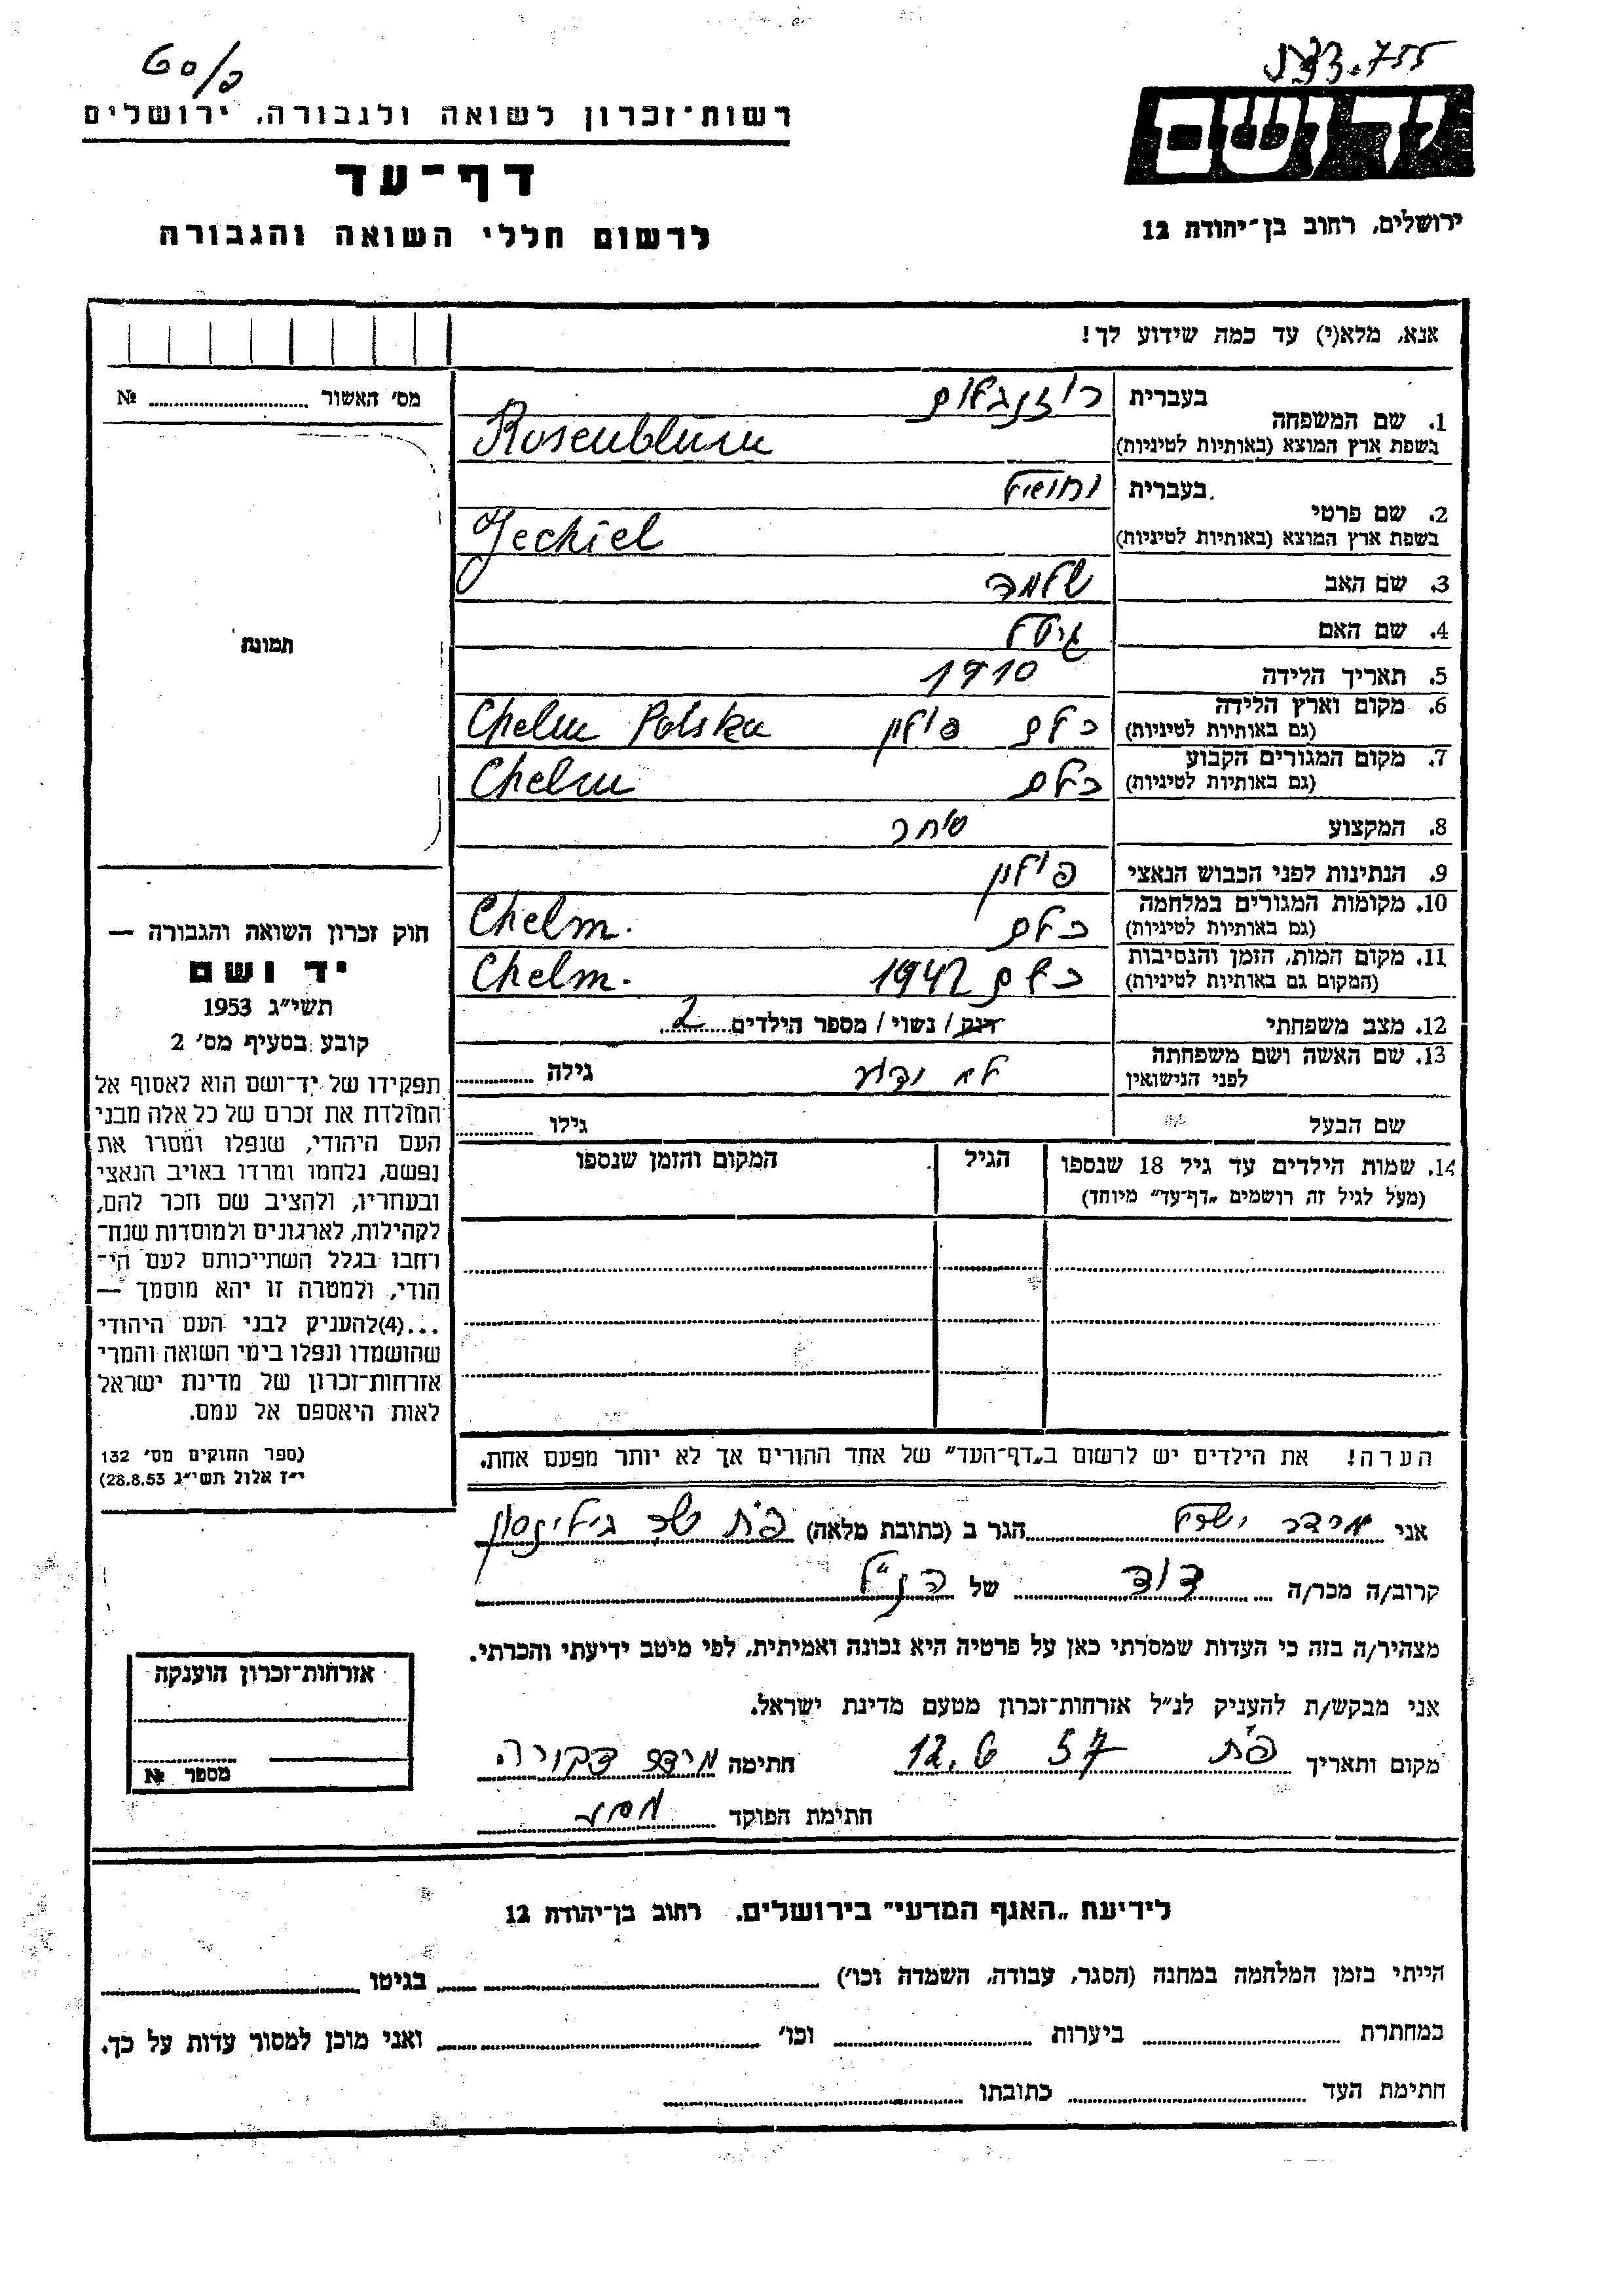 60/פ
533.755
רשות־זכרון לשואה ולגבורה, ירושלים
ידושם
דף־עד
לרשום חללי השואה והגבורה
ירושלים, רחוב בן־יהודה 12
אנא, מלא(י) עד כמה שידוע לך!
מס' האשור № 
1. שם המשפחה בעברית רוזנבלום
בשפת ארץ המוצא (באותיות לטיניות) Rosenblum
2. שם פרטי בעברית יחיאל
בשפת ארץ המוצא (באותיות לטיניות) Jechiel
3. שם האב שלמה
4. שם האם גיטל
5. תאריך הלידה 1910
6. מקום וארץ הלידה (גם באותיות לטיניות) כלם פולין Chelm Polska
7. מקום המגורים הקבוע (גם באותיות לטיניות) כלם Chelm
8. המקצוע סוחר
9. הנתינות לפני הכבוש הנאצי פולין
10. מקומות המגורים במלחמה (גם באותיות לטיניות) כלם Chelm.
11. מקום המות, הזמן והנסיבות (המקום גם באותיות לטיניות) כלם 1942 Chelm.
12. מצב משפחתי רווק / נשוי / מספר הילדים 2
13. שם האשה ושם משפחתה לפני הנישואין לא ידוע גילה
שם הבעל גילו
14. שמות הילדים עד גיל 18 שנספו הגיל המקום והזמן שנספו
(מעל לגיל זה רושמים „דף־עד" מיוחד)
הערה! את הילדים יש לרשום ב„דף־העד" של אחד ההורים אך לא יותר מפעם אחת.
תמונה
חוק זכרון השואה והגבורה —
יד ושם
תשי"ג 1953
קובע בסעיף מס' 2
תפקידו של יד־ושם הוא לאסוף אל
המולדת את זכרם של כל אלה מבני
העם היהודי, שנפלו ומסרו את
נפשם, נלחמו ומרדו באויב הנאצי
ובעוזריו, ולהציב שם וזכר להם,
לקהילות, לארגונים ולמוסדות שנח־
רבו בגלל השתייכותם לעם הי־
הודי, ולמטרה זו יהא מוסמך —
...(4)להעניק לבני העם היהודי
שהושמדו ונפלו בימי השואה והמרי
אזרחות־זכרון של מדינת ישראל
לאות היאספם אל עמם.
(ספר החוקים מס' 132
י"ז אלול תשי"ג 28.8.53)
אני מידר ישראל הגר ב (כתובת מלאה) פ"ת
קרוב/ה מכר/ה דוד של הנ"ל
מצהיר/ה בזה כי העדות שמסרתי כאן על פרטיה היא נכונה ואמיתית, לפי מיטב ידיעתי והכרתי.
אני מבקש/ת להעניק לנ"ל אזרחות־זכרון מטעם מדינת ישראל.
מקום ותאריך פ"ת 12.6 57 חתימה מידר דבורה
חתימת הפוקד
אזרחות־זכרון הוענקה
מספר №
לידיעת „האגף המדעי" בירושלים, רחוב בן־יהודה 12
הייתי בזמן המלחמה במחנה (הסגר, עבודה, השמדה וכו') בגיטו
במחתרת ביערות וכו' ואני מוכן למסור עדות על כך.
חתימת העד כתובתו